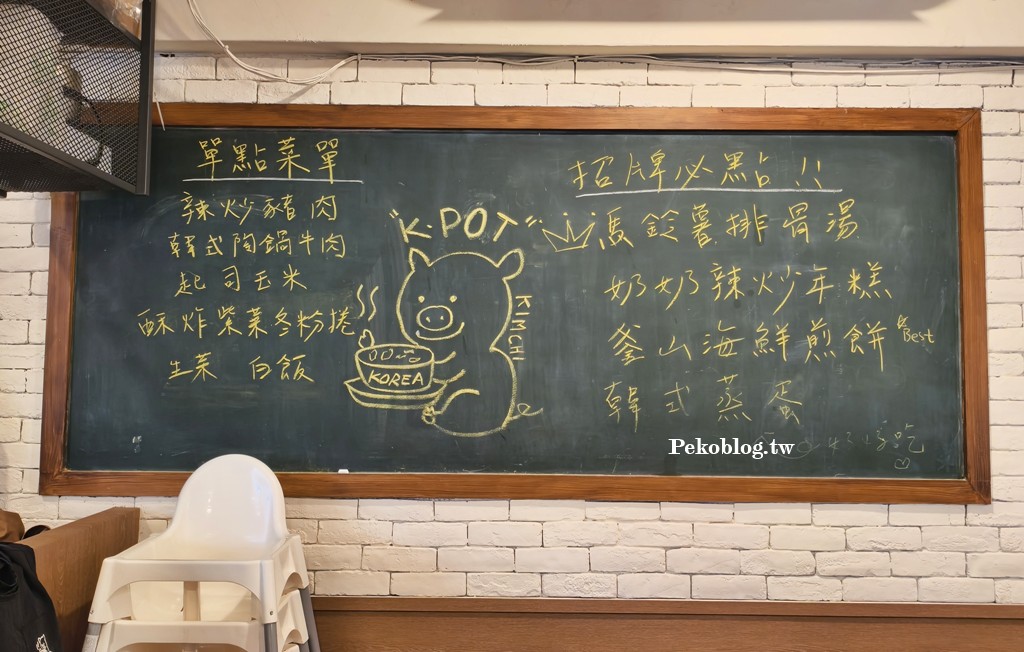 單點菜單
辣炒豬肉
韓式陶鍋牛肉
起司玉米
酥炸紫菜冬粉捲
生菜 白飯
"K·POT"
KIMCHI
KOREA
招牌必點!!
馬鈴薯排骨湯
奶奶辣炒年糕
釜山海鮮煎餅 Best
韓式蒸蛋
Pekoblog.tw